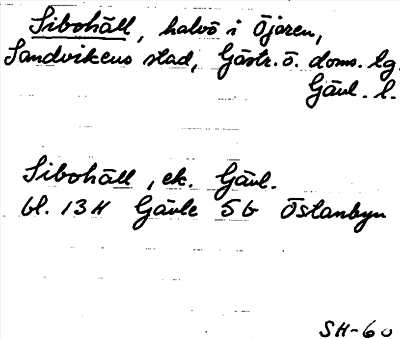 Sibohäll, halvö i Öjaren,
Sandvikens stad, Gästr. ö. doms. lg.
Gävl. l.
Sibohäll, ek. Gävl.
bl. 13H Gävle 5b Östanbyn
SH-60